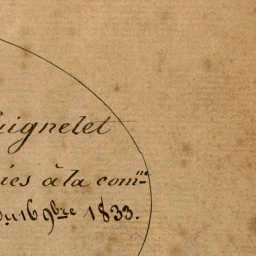 uignelet
ies à la com.ne
du 16 9bre 1833.